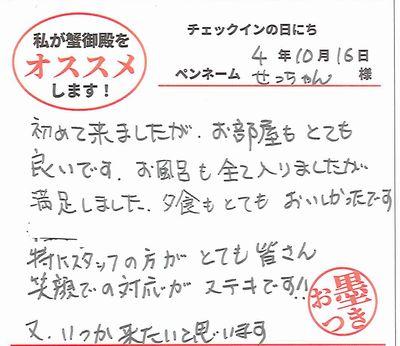 私が蟹御殿を
オススメ
します！
チェックインの日にち
4 年 10 月 16 日
ペンネーム せっちゃん 様
初めて来ましたが、お部屋もとても
良いです。お風呂も全て入りましたが
満足しました。夕食もとても おいしかったです
特にスタッフの方が とても皆さん
笑顔での対応が ステキです!!
又、いつか来たいと思います
お墨つき